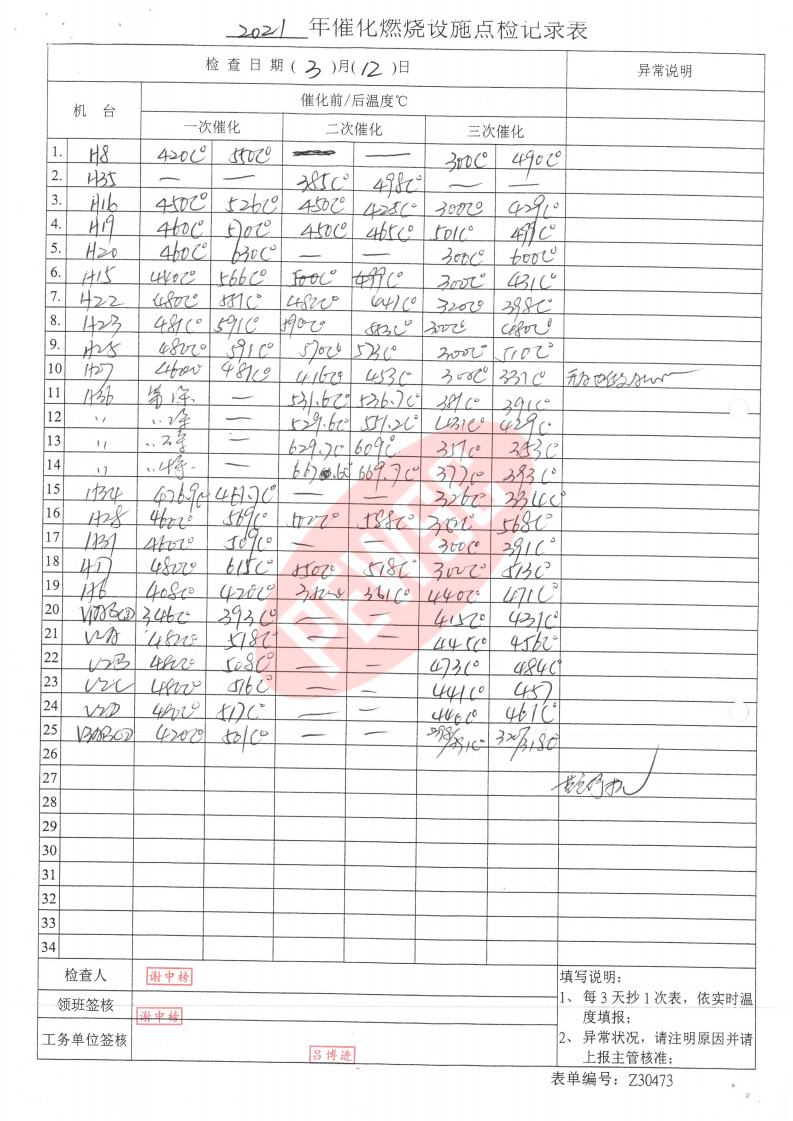 2021 年催化燃烧设施点检记录表
检 查 日 期 ( 3 )月( 12 )日 异常说明
机 台 催化前/后温度℃
一次催化 二次催化 三次催化
1. H8 420C° 550C° — 300C° 490C°
2. H35 — — 385C° 498C° — —
3. H16 450C° 526C° 450C° 425C° 300C° 429C°
4. H19 460C° 570C° 450C° 465C° 501C°
5. H20 460C° 630C° — — 300C° 600C°
6. H15 440C° 566C° 500C° 499C° 300C° 431C°
7. H22 480C° 551C° 482C° 441C° 320C° 398C°
8. H23 481C° 591C° 590C° 300C° 480C°
9. H25 480C° 591C° 570C° 573C° 300C° 510C°
10 H27 460C° 481C° 416C° 453C° 300C° 331C°
11 H36 — 531.6C° 536.7C° 381C° 391C°
12 〃 — 529.6C° 551.2C° 431C° 429C°
13 〃 — 629.7C° 609C° 357C° 353C°
14 〃 — 669.7C° 377C° 393C°
15 H34 — — 326C° 334C°
16 H28 460C° 569C° 502C° 588C° 568C°
17 H31 460C° 509C° — — 300C° 391C°
18 H17 480C° 615C° 550C° 518C° 300C° 513C°
19 H6 408C° 420C° 361C° 440C° 471C°
20 346C° 393C° — — 415C° 431C°
21 V2A 482C° 518C° — — 445C° 456C°
22 V2B 480C° 508C° — — 473C° 484C°
23 V2C 480C° 516C° — — 441C° 457
24 V2D 480C° 517C° — — 440C° 461C°
25 420C° 501C° — — 320/318C°
26
27
28
29
30
31
32
33
34
PEWC
检查人 谢中榜
领班签核 谢中榜
工务单位签核 吕博进
填写说明:
1、每 3 天抄 1 次表，依实时温
度填报；
2、异常状况，请注明原因并请
上报主管核准；
表单编号：Z30473